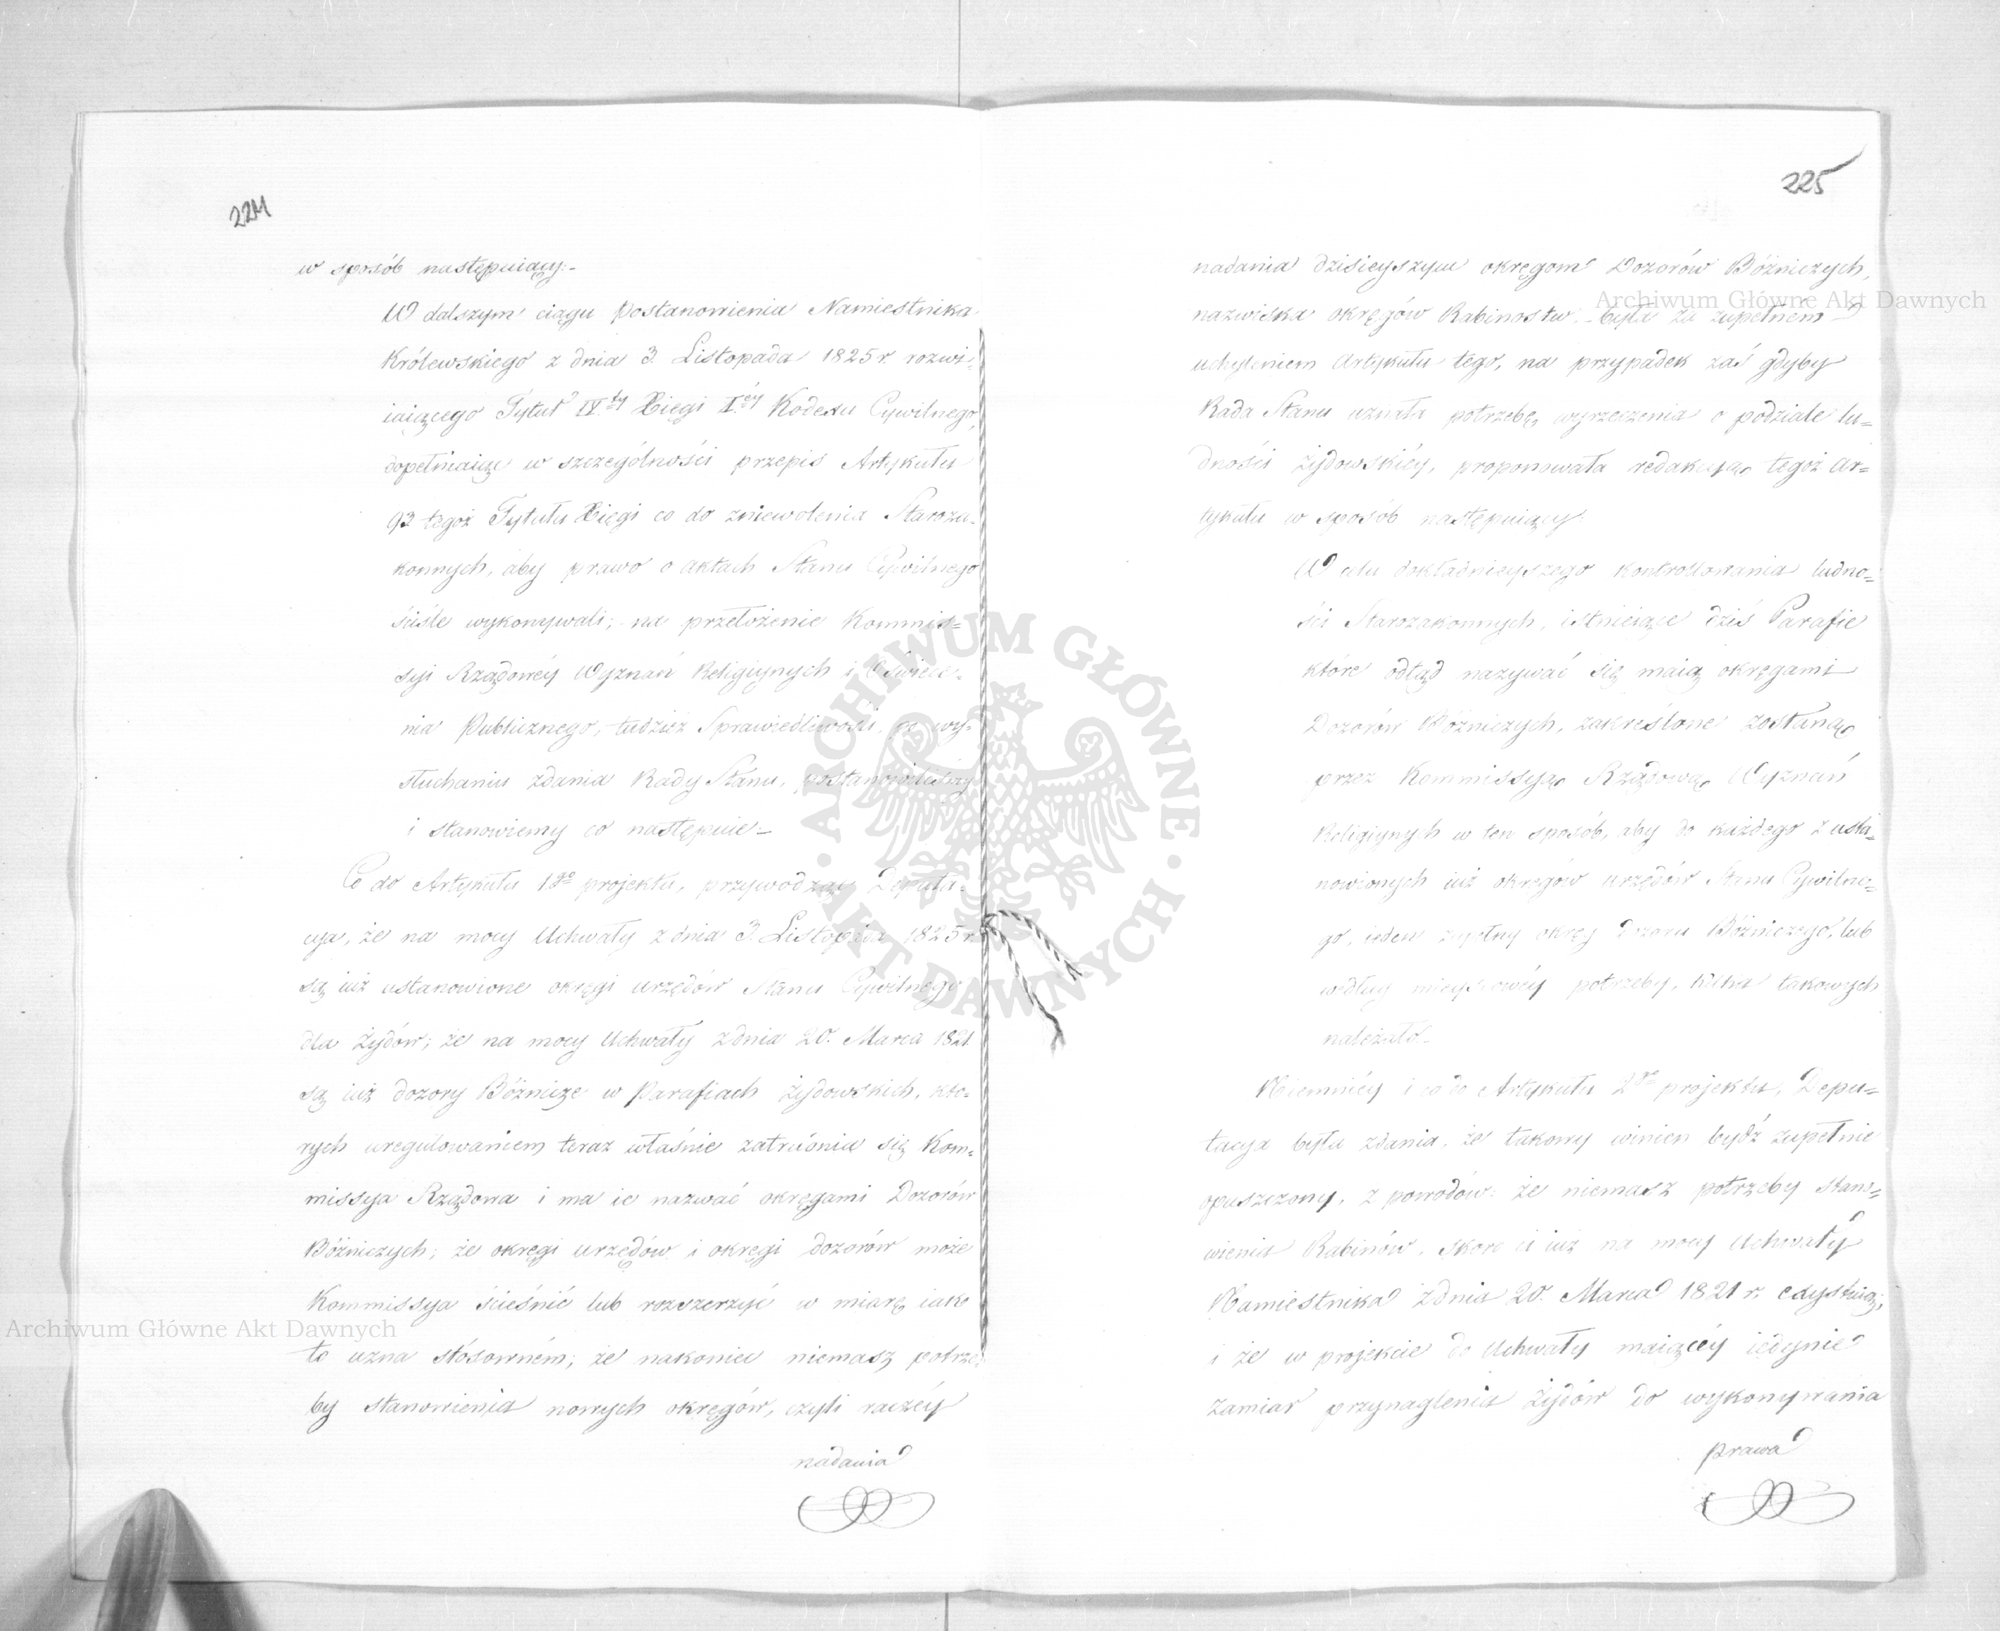 224
w sposób następuiący:-
W dalszym ciągu Postanowienia Namiestnika
Królewskiego z dnia 3. Listopada 1825 r. rozwi-
iaiącego Tytuł IV.ty Xięgi I.éy Kodexu Cywilnego,
dopełniaiąc w szczególności przepis Artykułu
93 tegoż Tytułu Xięgi co do zniewolenia Staroza-
konnych, aby prawo o aktach Stanu Cywilnego
ściśle wykonywali; na przełożenie Kommis-
syi Rządowéy Wyznań Religiynych i Oświece-
nia Publicznego, tudzież Sprawiedliwości, po wy-
słuchaniu zdania Rady Stanu, postanowiliśmy
i stanowiemy co następuie-
Co do Artykułu 1go projektu, przywodząc Deputa-
cya, że na mocy Uchwały z dnia 3. Listopada 1825 r.
są iuż ustanowione okręgi urzędów Stanu Cywilnego
dla Żydów; że na mocy Uchwały z dnia 20. Marca 1821.
są iuż dozory Bóżnicze w Parafiach Żydowskich, któ-
rych uregulowaniem teraz właśnie zatrudnia się Kom-
missya Rządowa i ma ie nazwać okręgami Dozorów
Bóżniczych; że okręgi urzędów i okręgi dozorów może
Kommissya ścieśnić lub rozszerzyć w miarę iak
to uzna stósowném; że nakoniec niemasz potrze-
by stanowienia nowych okręgów, czyli raczéy
nadania
225
nadania dzisieyszym okręgom Dozorów Bóżniczych,
nazwiska okręgów Rabinostw - była za zupełnem
uchyleniem Artykułu tego, na przypadek zaś gdyby
Rada Stanu uznała potrzebę wyrzeczenia o podziale lu-
dności Żydowskiéy, proponowała redakcyą tegoż Ar-
tykułu w sposób następuiący
W celu dokładnieyszego kontrollowania ludno-
ści Starozakonnych, istnieiące dziś Parafie
które odtąd nazywać się maią okręgami
Dozorów Bóżniczych, zakreślone zostaną
przez Kommissyą Rządową Wyznań
Religiynych w ten sposób, aby do każdego z usta-
nowionych iuż okręgów urzędów Stanu Cywilne-
go, ieden zupełny okręg Dozoru Bóżniczego, lub
według mieyscowéy potrzeby, kilka takowych
należało.-
Niemniéy i co do Artykułu 2go projektu, Depu-
tacya była zdania, że takowy winien bydź zupełnie
opuszczony, z powodów: że niemasz potrzeby stano-
wienia Rabinów, skoro ci iuż na mocy Uchwały
Namiestnika z dnia 20. Marca 1821 r. exystuią;
i że w projekcie do Uchwały maiącéy iedynie
zamiar przynaglenia Żydów do wykonywania
prawa
Archiwum Główne Akt Dawnych
Archiwum Główne Akt Dawnych
ARCHIWUM GŁÓWNE · AKT DAWNYCH ·